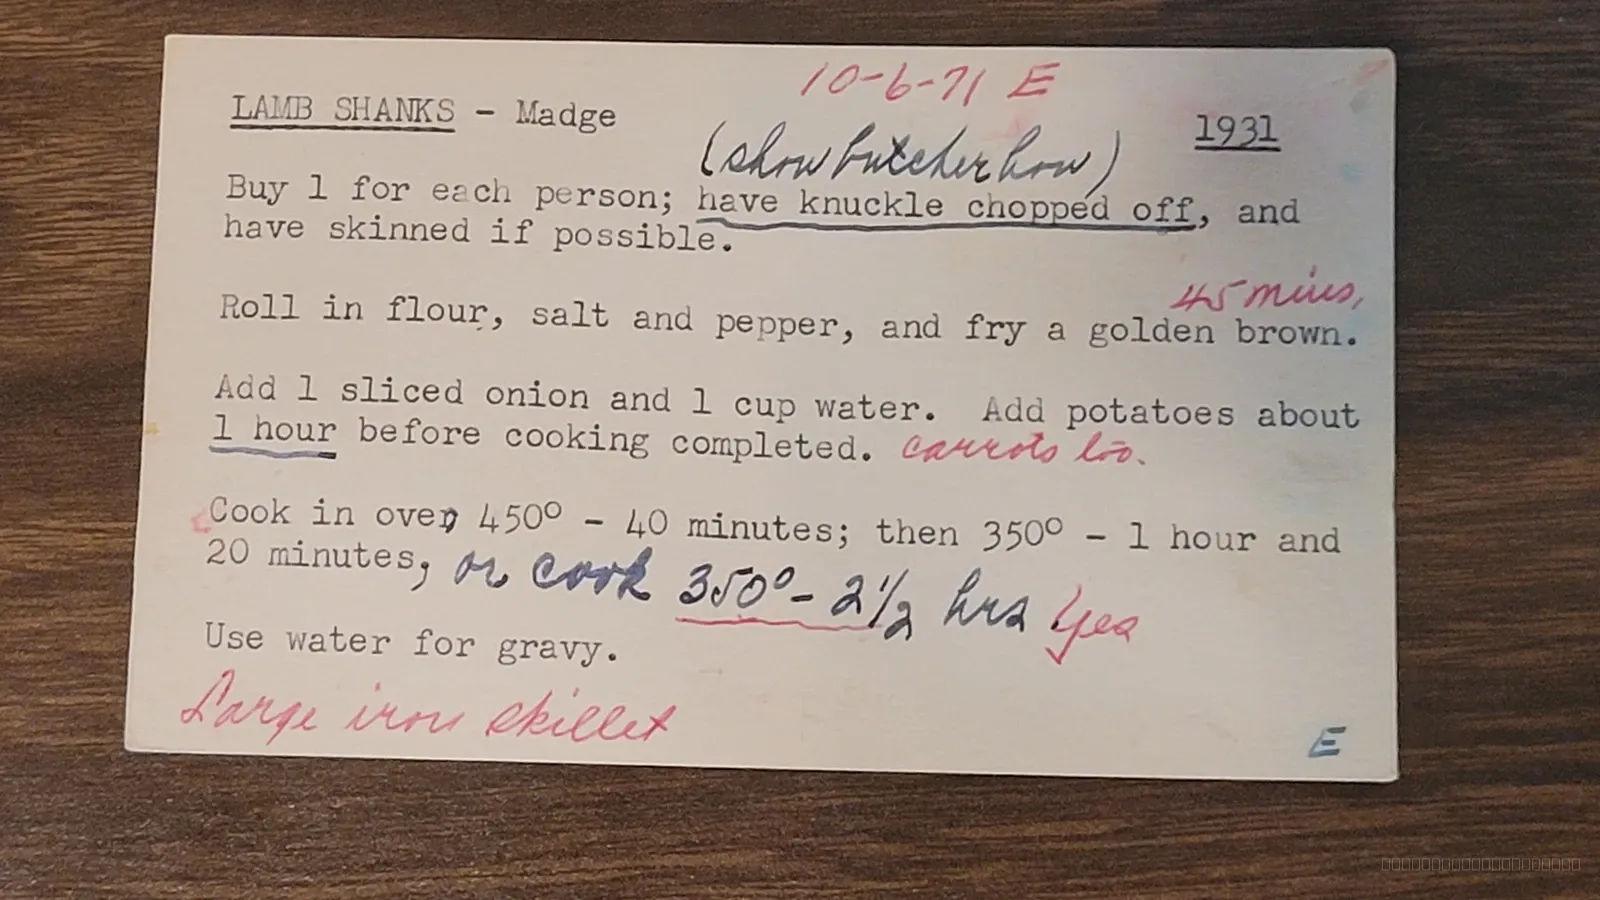 10-6-71 E
LAMB SHANKS - Madge
1931
(show butcher how)
Buy 1 for each person; have knuckle chopped off, and
have skinned if possible.
45 mins,
Roll in flour, salt and pepper, and fry a golden brown.
Add 1 sliced onion and 1 cup water. Add potatoes about
1 hour before cooking completed. carrots too.
Cook in oven 450° - 40 minutes; then 350° - 1 hour and
20 minutes, or cook 350° - 2 1/2 hrs Yes
Use water for gravy.
Large iron skillet
E